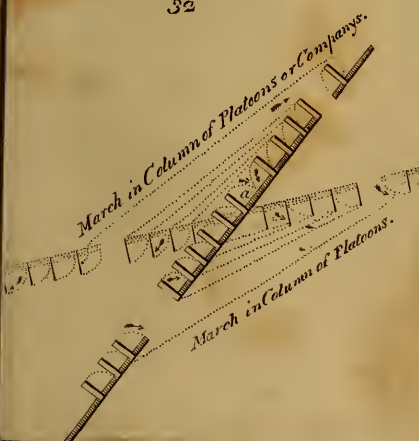 32
March in Column of Platoons or Companys.
a
March in Column of Platoons.